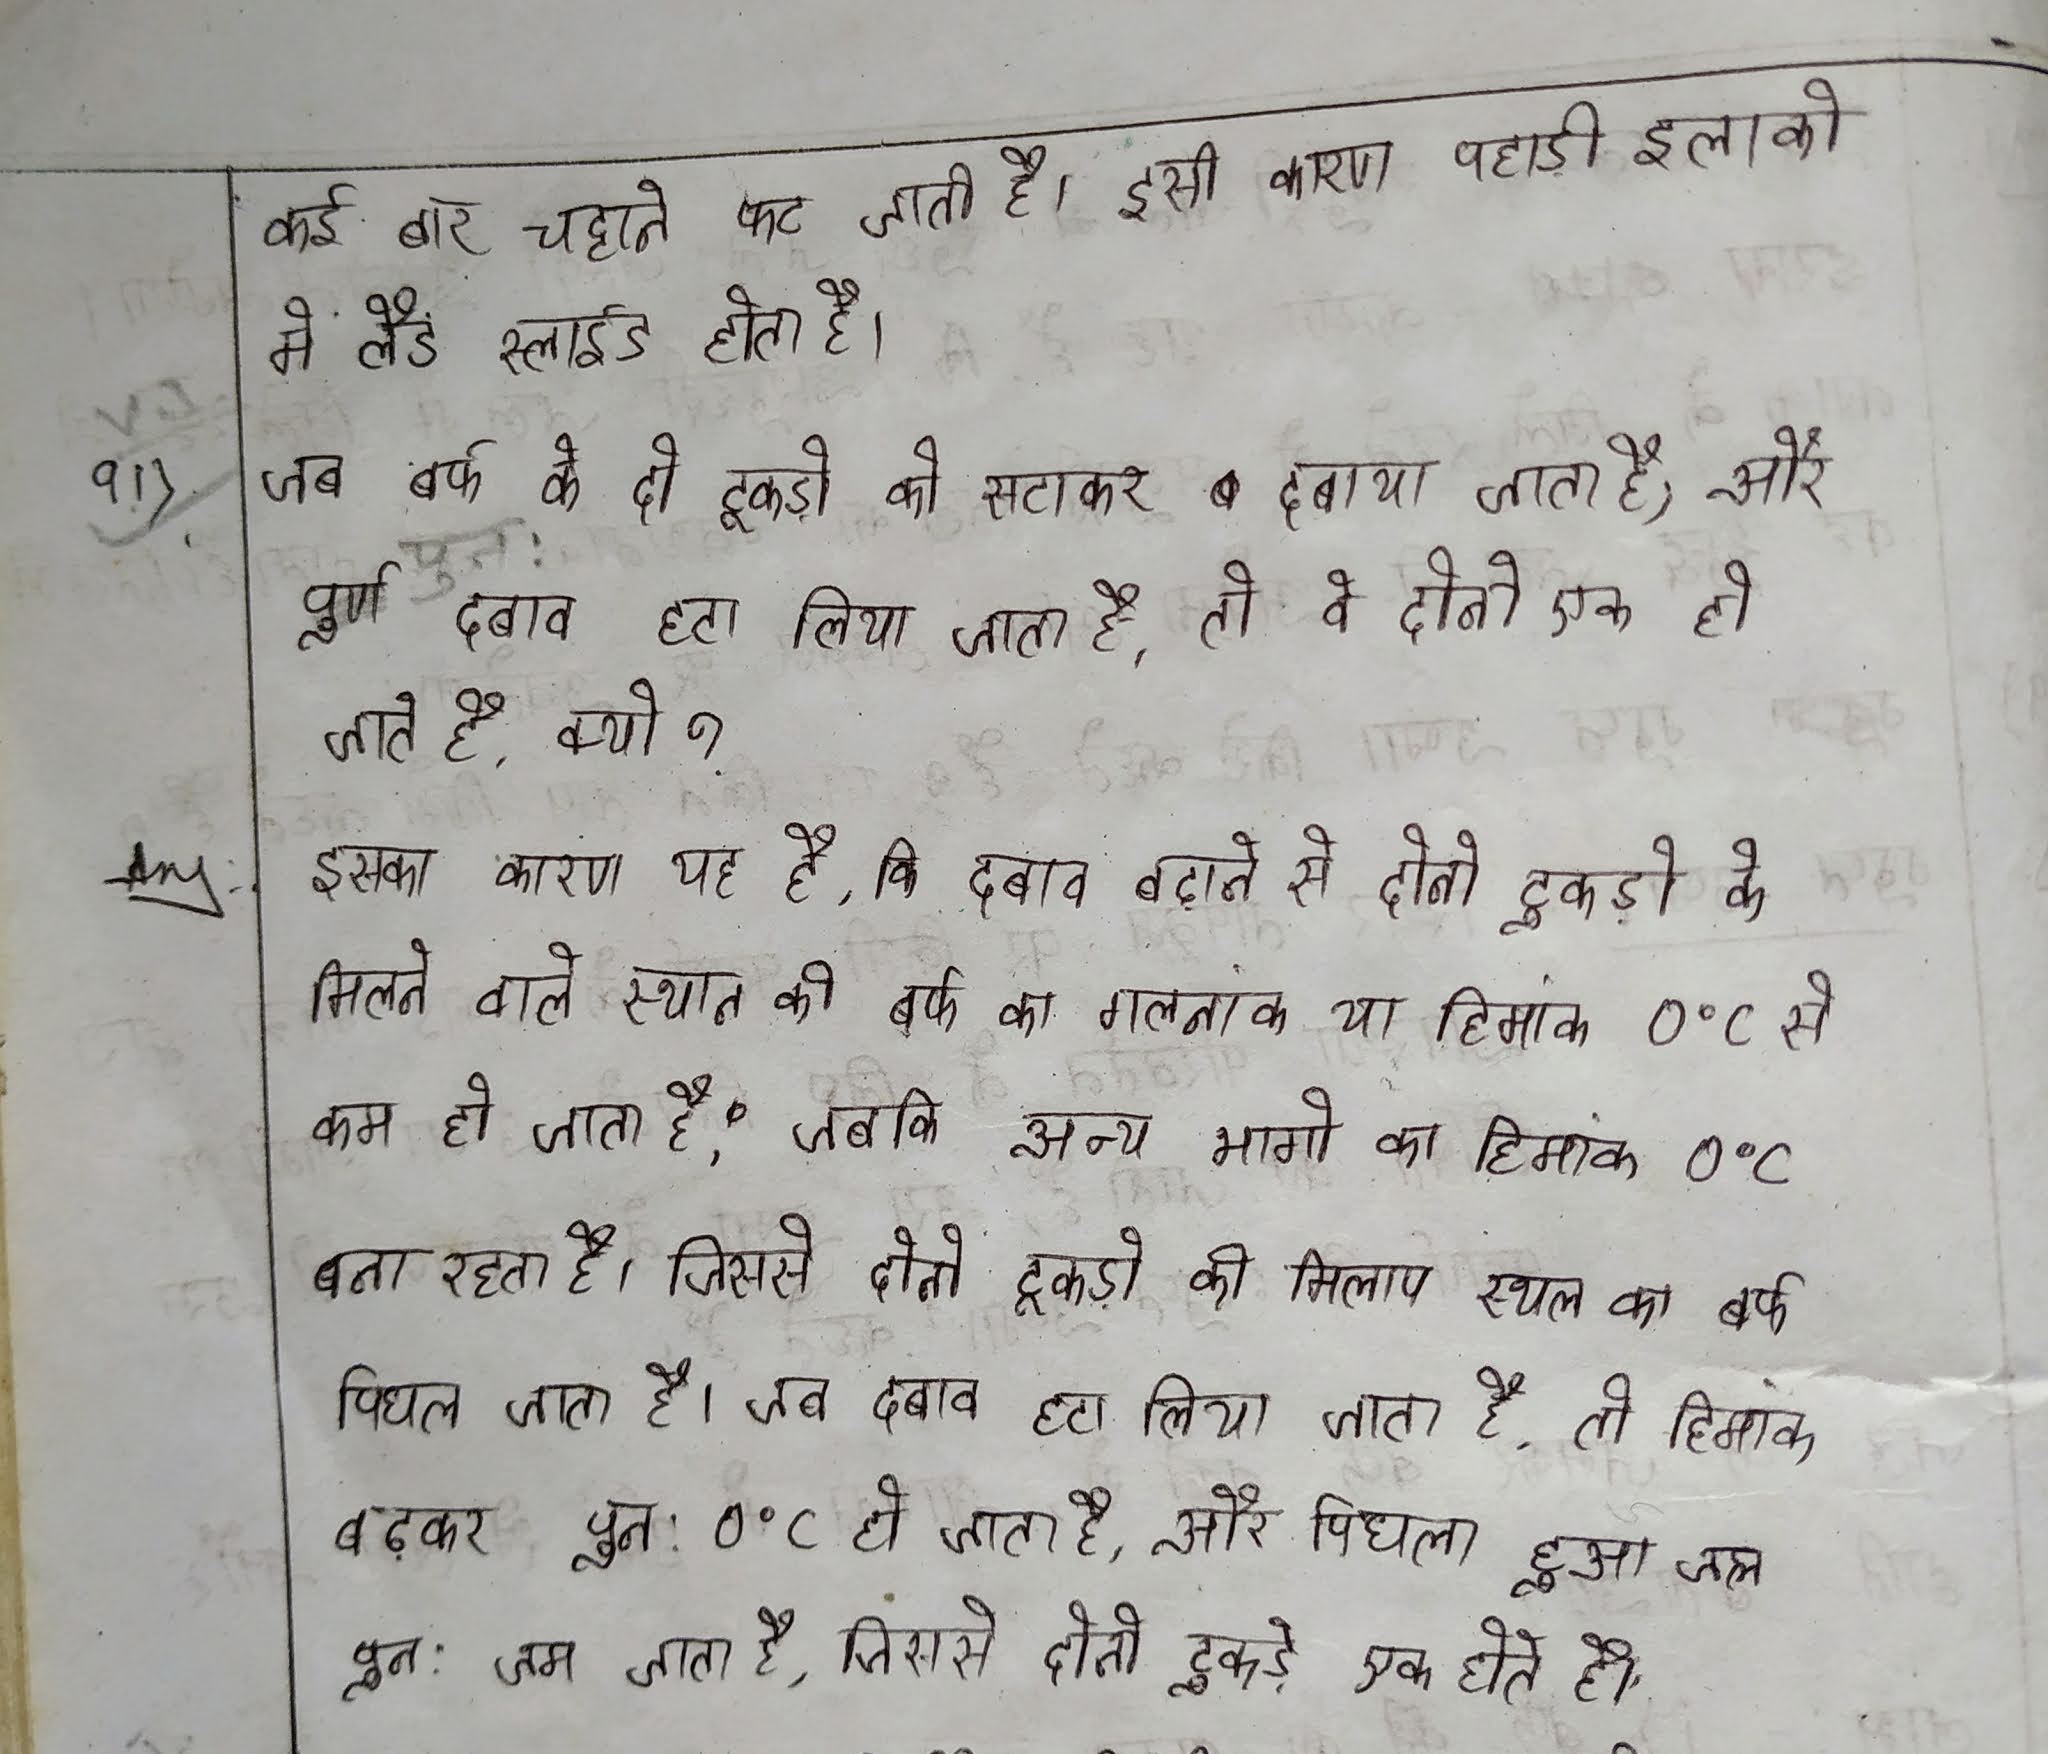 कई बार चट्टाने फट जाती है। इसी कारण पहाड़ी इलाको
में लैंड स्लाईड होता है।
911) जब बर्फ के दो टूकड़ो को सटाकर दबाया जाता है, और
पुन:
पूर्ण दबाव हटा लिया जाता है, तो वे दोनो एक हो
जाते है, क्यो ?
Ans: इसका कारण यह है, कि दबाव बढ़ाने से दोनो टुकड़ो के
मिलने वाले स्थान की बर्फ का गलनांक या हिमांक 0°C से
कम हो जाता है, जबकि अन्य भागो का हिमांक 0°C
बना रहता है। जिससे दोनो टूकड़ो की मिलाप स्थल का बर्फ
पिघल जाता है। जब दबाव हटा लिया जाता है, तो हिमांक
बढ़कर पुन: 0°C हो जाता है, और पिघला हुआ जल
पुन: जम जाता है, जिससे दोनो टुकड़े एक होते है।